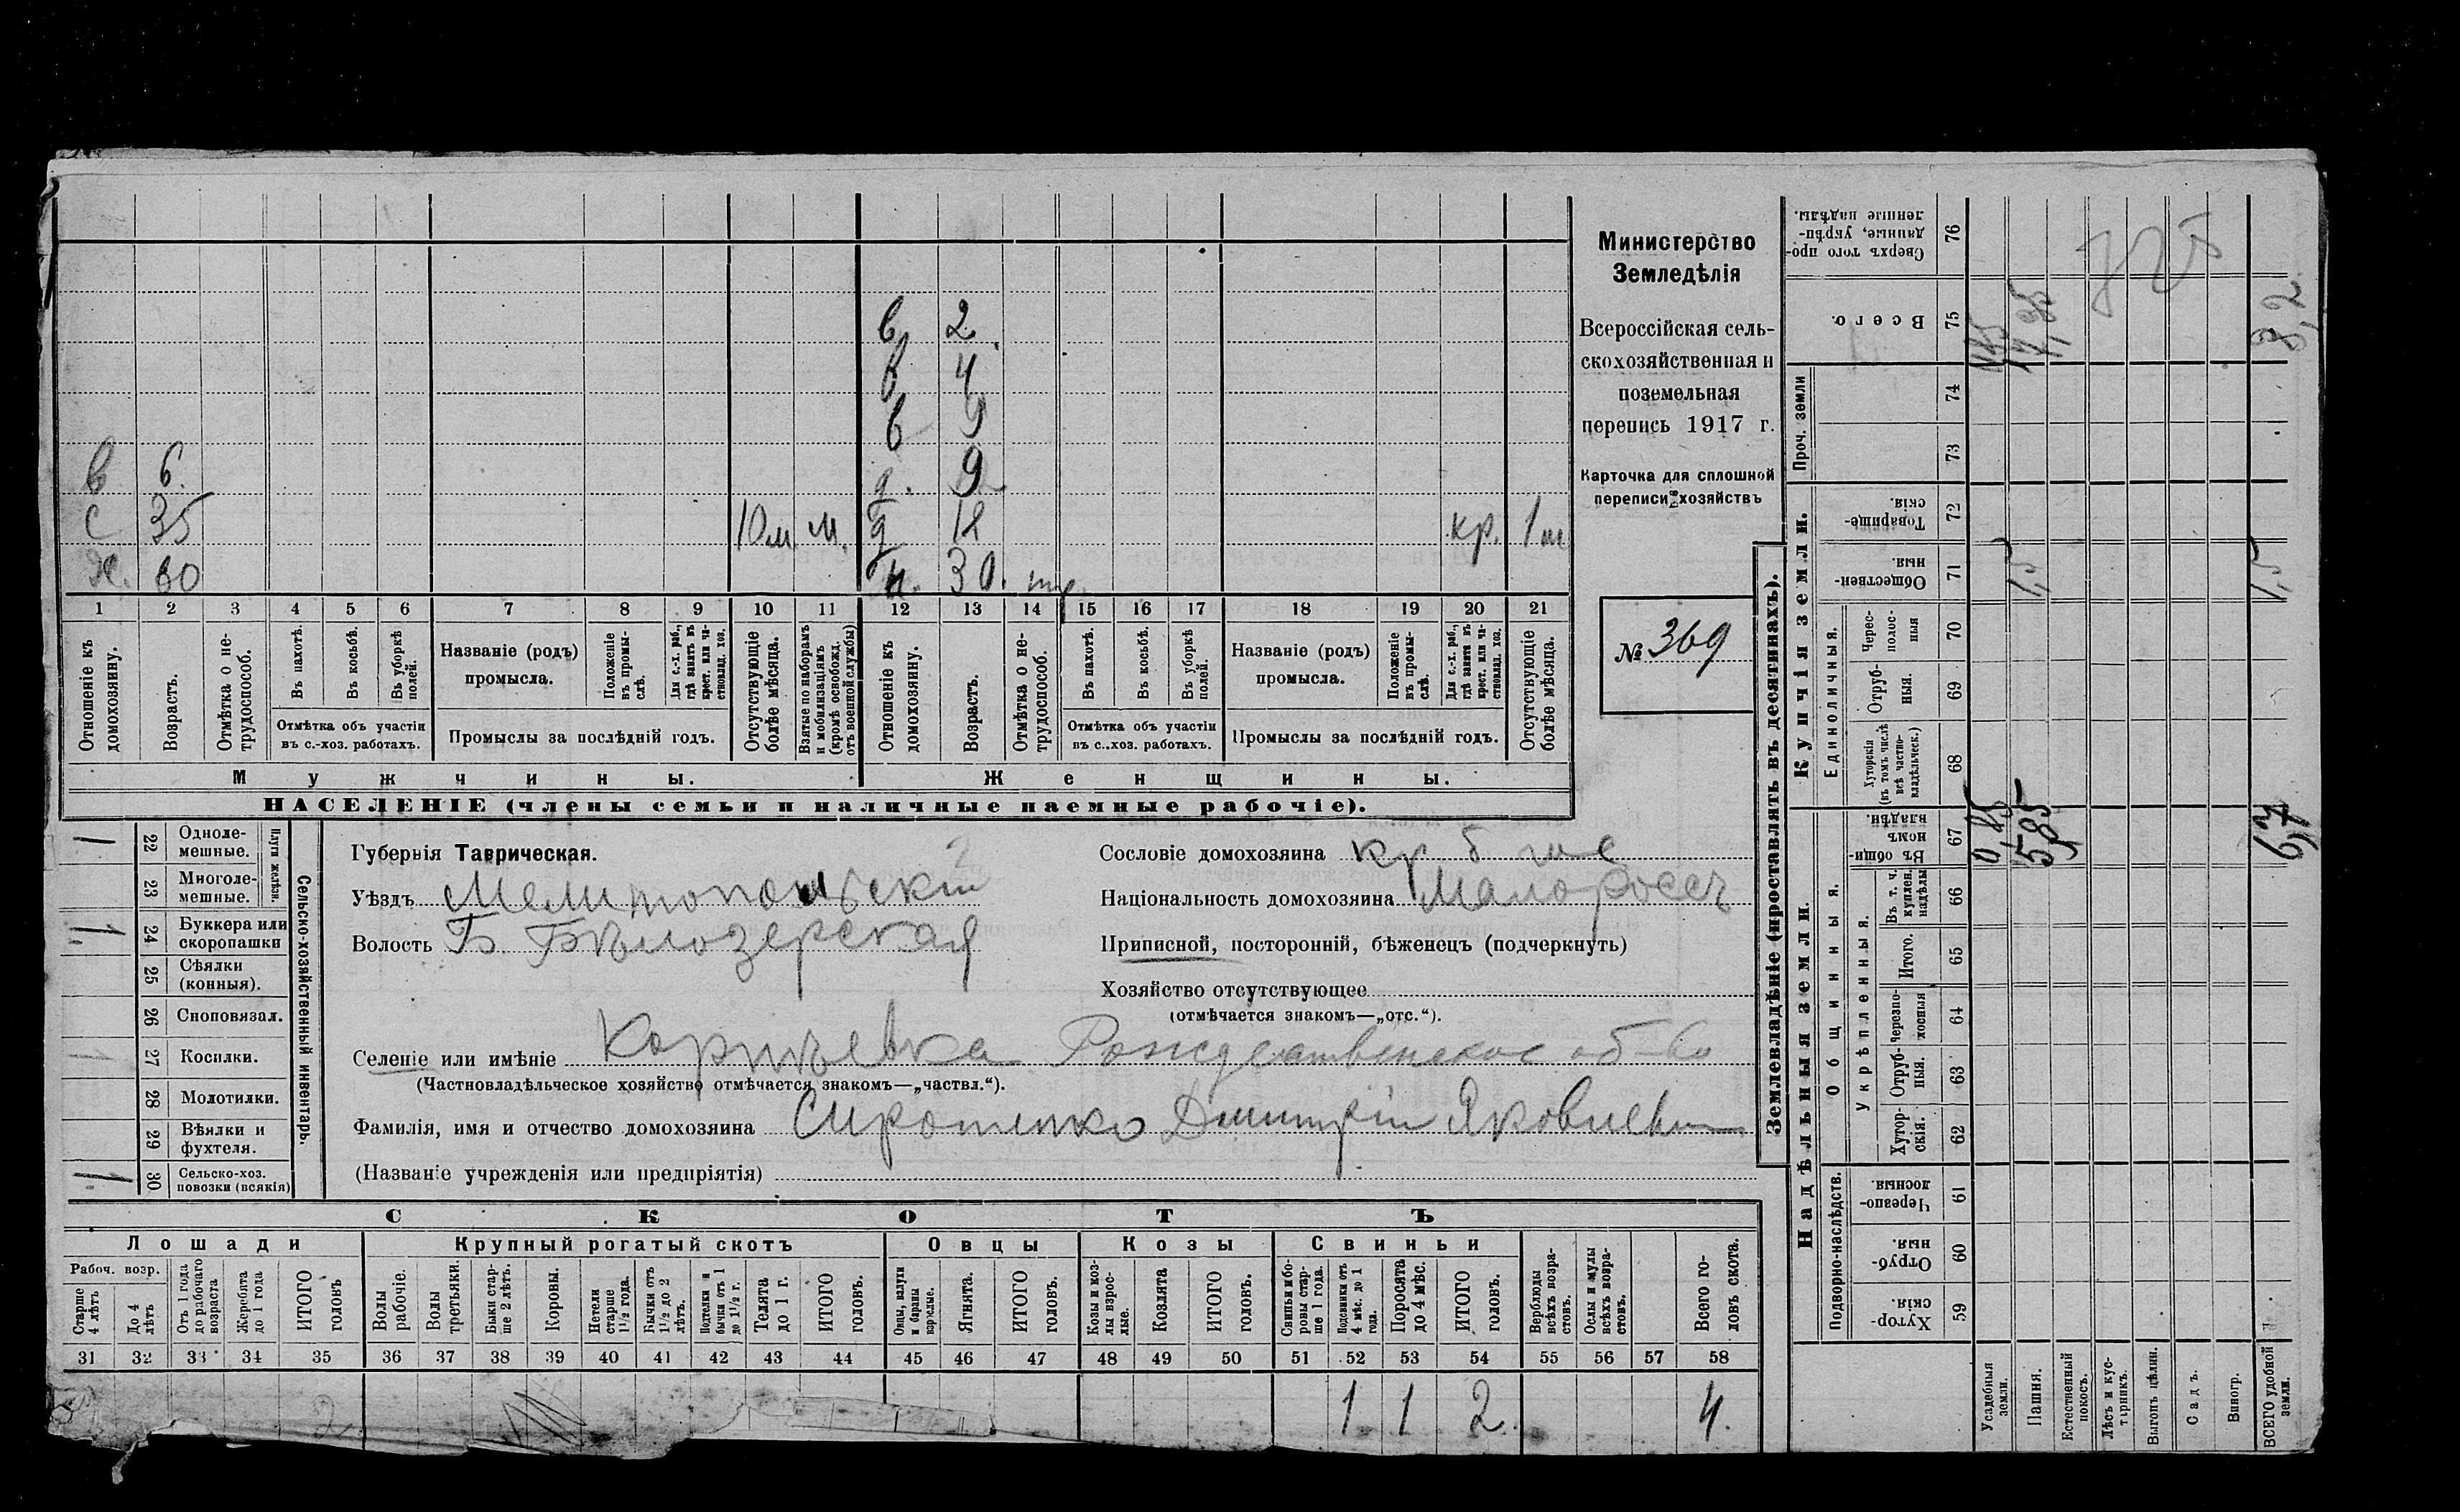 Министерство
Земледѣлія
Всероссійская сель-
скохозяйственная и
поземельная
перепись 1917 г.
Карточка для сплошной
переписи хозяйствъ
№ 369
в 2
в 4
в 9
в 6 д. 9
с 35 10м м. д 12 кр. 1м
Х. 60 30.
1 2 3 4 5 6 7 8 9 10 11 12 13 14 15 16 17 18 19 20 21
Отношеніе къ домохозяину.
Возрастъ.
Отмѣтка о не-трудоспособ.
Въ пахотѣ.
Въ косьбѣ.
Въ уборкѣ полей.
Отмѣтка объ участіи
въ с.-хоз. работахъ.
Названіе (родъ)
промысла.
Положеніе въ промы-слѣ.
Для с.-х. раб., гдѣ занятъ въ крест. или ча-стновлад. хоз.
Промыслы за послѣдній годъ.
Отсутствующіе болѣе мѣсяца.
Взятые по наборамъ и мобилизаціямъ (кромѣ освобожд. отъ военной службы)
Отношеніе къ домохозяину.
Возрастъ.
Отмѣтка о не-трудоспособ.
Въ пахотѣ.
Въ косьбѣ.
Въ уборкѣ полей.
Отмѣтка объ участіи
въ с.-хоз. работахъ.
Названіе (родъ)
промысла.
Положеніе въ промы-слѣ.
Для с.-х. раб., гдѣ занята въ крест. или ча-стновлад. хоз.
Промыслы за послѣдній годъ.
Отсутствующіе болѣе мѣсяца.
Мужчины. Женщины.
НАСЕЛЕНІЕ (члены семьи и наличные наемные рабочіе).
1 22 Одноле-мешные.
23 Многоле-мешные.
Плуги желѣзн.
1 24 Буккера или скоропашки
25 Сѣялки (конныя).
26 Сноповязал.
1 27 Косилки.
28 Молотилки.
29 Вѣялки и фухтеля.
1 30 Сельско-хоз. повозки (всякія)
Сельско-хозяйственный инвентарь.
Губернія Таврическая.
Уѣздъ Мелитопольскій
Волость Б Бѣлозерская
Сословіе домохозяина кр
Національность домохозяина Малороссъ
Приписной, посторонній, бѣженецъ (подчеркнуть)
Хозяйство отсутствующее
(отмѣчается знакомъ—„отс.“).
Селеніе или имѣніе Рождественское об-во
(Частновладѣльческое хозяйство отмѣчается знакомъ—„частвл.“).
Фамилія, имя и отчество домохозяина Сиротенко Дмитрій Яковлевич
(Названіе учрежденія или предпріятія)
СКОТЪ
Лошади Крупный рогатый скотъ Овцы Козы Свиньи
Рабоч. возр.
Старше 4 лѣтъ
До 4 лѣтъ
Отъ 1 года до рабочаго возраста
Жеребята до 1 года
ИТОГО головъ
Волы рабочіе.
Волы третьяки.
Быки стар-ше 2 лѣтъ.
Коровы.
Нетели старше 1½ года.
Бычки отъ 1½ до 2 лѣтъ.
Подтелки и бычки отъ 1 до 1½ г.
Телята до 1 г.
ИТОГО головъ.
Овцы, валухи и бараны взрослые.
Ягнята.
ИТОГО головъ.
Козы и коз-лы взрос-лые.
Козлята
ИТОГО головъ.
Свиньи и бо-ровы стар-ше 1 года.
Подсвинки отъ 4 мѣс. до 1 года.
Поросята до 4 мѣс.
ИТОГО головъ.
Верблюды всѣхъ возра-стовъ.
Ослы и мулы всѣхъ возра-стовъ.
Всего го-ловъ скота.
31 32 33 34 35 36 37 38 39 40 41 42 43 44 45 46 47 48 49 50 51 52 53 54 55 56 57 58
2 1 1 2 4.
Землевладѣніе (проставлять въ десятинахъ).
Надѣльныя земли. Купчія земли. Проч. земли
Подворно-наслѣдств.
Общинныя.
Укрѣпленныя.
Единоличныя.
Хутор-скія. 59
Отруб-ныя. 60
Черезпо-лосныя. 61
Хутор-скія. 62
Отруб-ныя. 63
Черезпо-лосныя 64
Итого. 65
Въ т. ч. куплен. надѣлы 66
Въ общи-номъ владѣн. 67
Хуторскія (въ томъ числѣ всѣ частно-владѣльческ.) 68
Отруб-ныя. 69
Черес-полос-ныя 70
Обществен-ныя. 71
Товарище-скія. 72
73
74
Всего. 75
Сверхъ того про-данные, укрѣп-ленные надѣлы. 76
Усадебныя земли. 0,85
Пашня. 5,85 1,5
Естественный покосъ.
Лѣсъ и кус-тарникъ.
Выгонъ цѣлин.
Садъ.
Виногр.
ВСЕГО удобной земли. 6,7 1,5 8,2